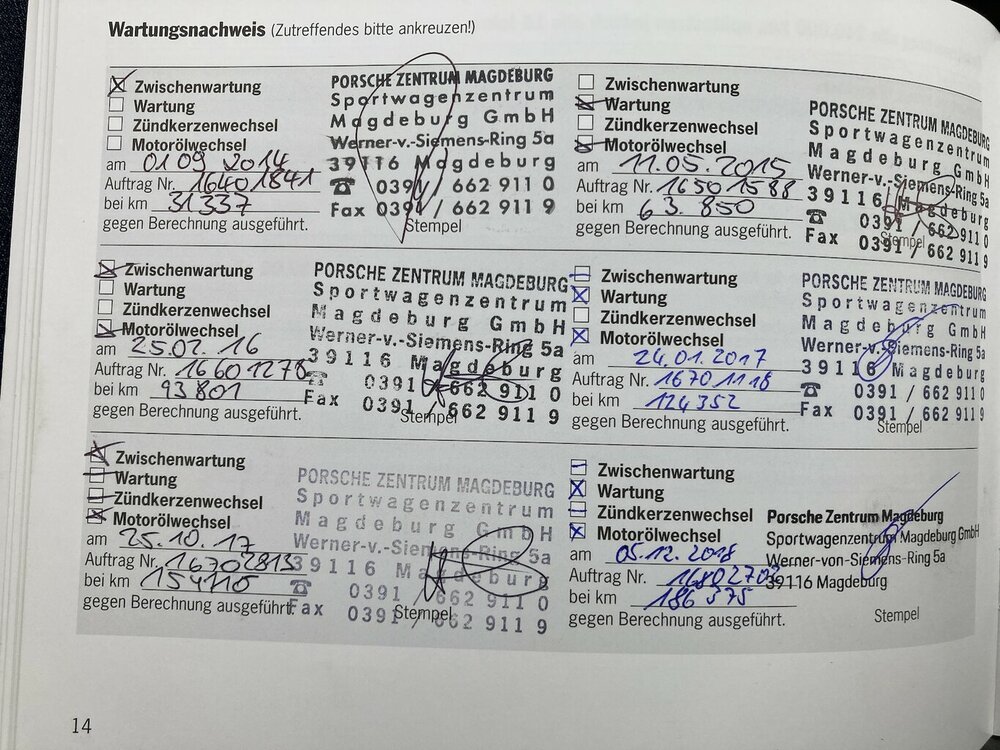 Wartungsnachweis (Zutreffendes bitte ankreuzen!)
Zwischenwartung
Wartung
Zündkerzenwechsel
Motorölwechsel
am 01 09 2014
Auftrag Nr. 16401841
bei km 31337
gegen Berechnung ausgeführt.
PORSCHE ZENTRUM MAGDEBURG
Sportwagenzentrum
Magdeburg GmbH
Werner-v.-Siemens-Ring 5a
39116 Magdeburg
☎ 0391 / 662 911 0
Fax 0391 / 662 911 9
Stempel
Zwischenwartung
Wartung
Zündkerzenwechsel
Motorölwechsel
am 11.05.2015
Auftrag Nr. 16501588
bei km 63.850
gegen Berechnung ausgeführt.
PORSCHE ZENTRUM MAGDEBURG
Sportwagenzentrum
Magdeburg GmbH
Werner-v.-Siemens-Ring 5a
39116 Magdeburg
☎ 0391 / 662 911 0
Fax 0391 / 662 911 9
Stempel
Zwischenwartung
Wartung
Zündkerzenwechsel
Motorölwechsel
am 25.02.16
Auftrag Nr. 16601278
bei km 93801
gegen Berechnung ausgeführt.
PORSCHE ZENTRUM MAGDEBURG
Sportwagenzentrum
Magdeburg GmbH
Werner-v.-Siemens-Ring 5a
39116 Magdeburg
☎ 0391 / 662 911 0
Fax 0391 / 662 911 9
Stempel
Zwischenwartung
Wartung
Zündkerzenwechsel
Motorölwechsel
am 24.01.2017
Auftrag Nr. 16701118
bei km 124352
gegen Berechnung ausgeführt.
PORSCHE ZENTRUM MAGDEBURG
Sportwagenzentrum
Magdeburg GmbH
Werner-v.-Siemens-Ring 5a
39116 Magdeburg
☎ 0391 / 662 911 0
Fax 0391 / 662 911 9
Stempel
Zwischenwartung
Wartung
Zündkerzenwechsel
Motorölwechsel
am 25.10.17
Auftrag Nr. 16702813
bei km 154110
gegen Berechnung ausgeführt.
PORSCHE ZENTRUM MAGDEBURG
Sportwagenzentrum
Magdeburg GmbH
Werner-v.-Siemens-Ring 5a
39116 Magdeburg
☎ 0391 / 662 911 0
Fax 0391 / 662 911 9
Stempel
Zwischenwartung
Wartung
Zündkerzenwechsel
Motorölwechsel
am 05.12.2018
Auftrag Nr.
bei km 186575
gegen Berechnung ausgeführt.
Porsche Zentrum Magdeburg
Sportwagenzentrum Magdeburg GmbH
Werner-von-Siemens-Ring 5a
39116 Magdeburg
Stempel
14